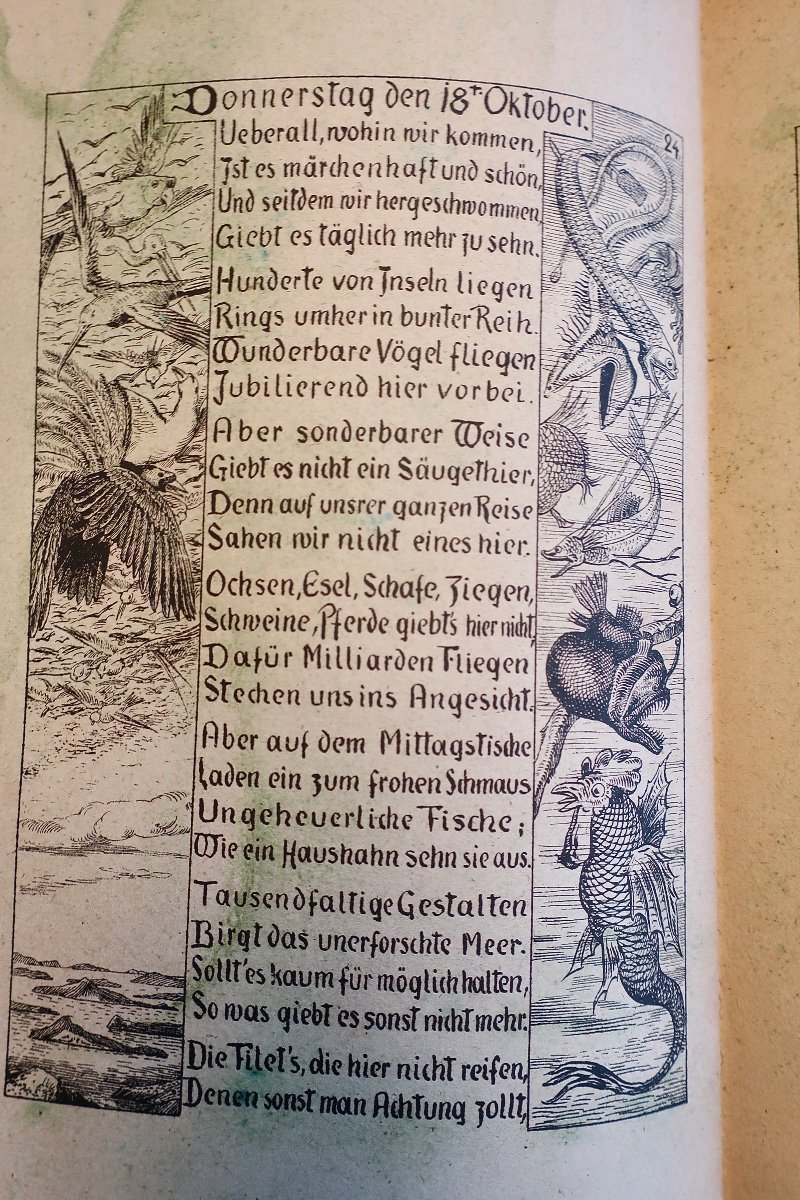 Donnerstag den 18ᵗ Oktober.
24
Ueberall, wohin wir kommen,
Ist es märchenhaft und schön,
Und seitdem wir hergeschwommen,
Giebt es täglich mehr zu sehn.
Hunderte von Inseln liegen
Rings umher in bunter Reih.
Wunderbare Vögel fliegen
Jubilierend hier vorbei.
Aber sonderbarer Weise
Giebt es nicht ein Säugethier,
Denn auf unsrer ganzen Reise
Sahen wir nicht eines hier.
Ochsen, Esel, Schafe, Ziegen,
Schweine, Pferde giebt's hier nicht,
Dafür Milliarden Fliegen
Stechen uns ins Angesicht.
Aber auf dem Mittagstische
Laden ein zum frohen Schmaus
Ungeheuerliche Fische;
Wie ein Haushahn sehn sie aus.
Tausendfaltige Gestalten
Birgt das unerforschte Meer.
Sollt'es kaum für möglich halten,
So was giebt es sonst nicht mehr.
Die Filet's, die hier nicht reifen,
Denen sonst man Achtung zollt,